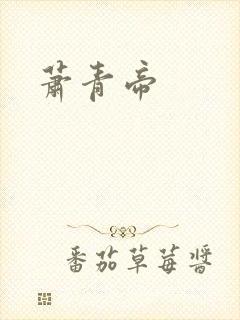 萧青帝
番茄草莓酱